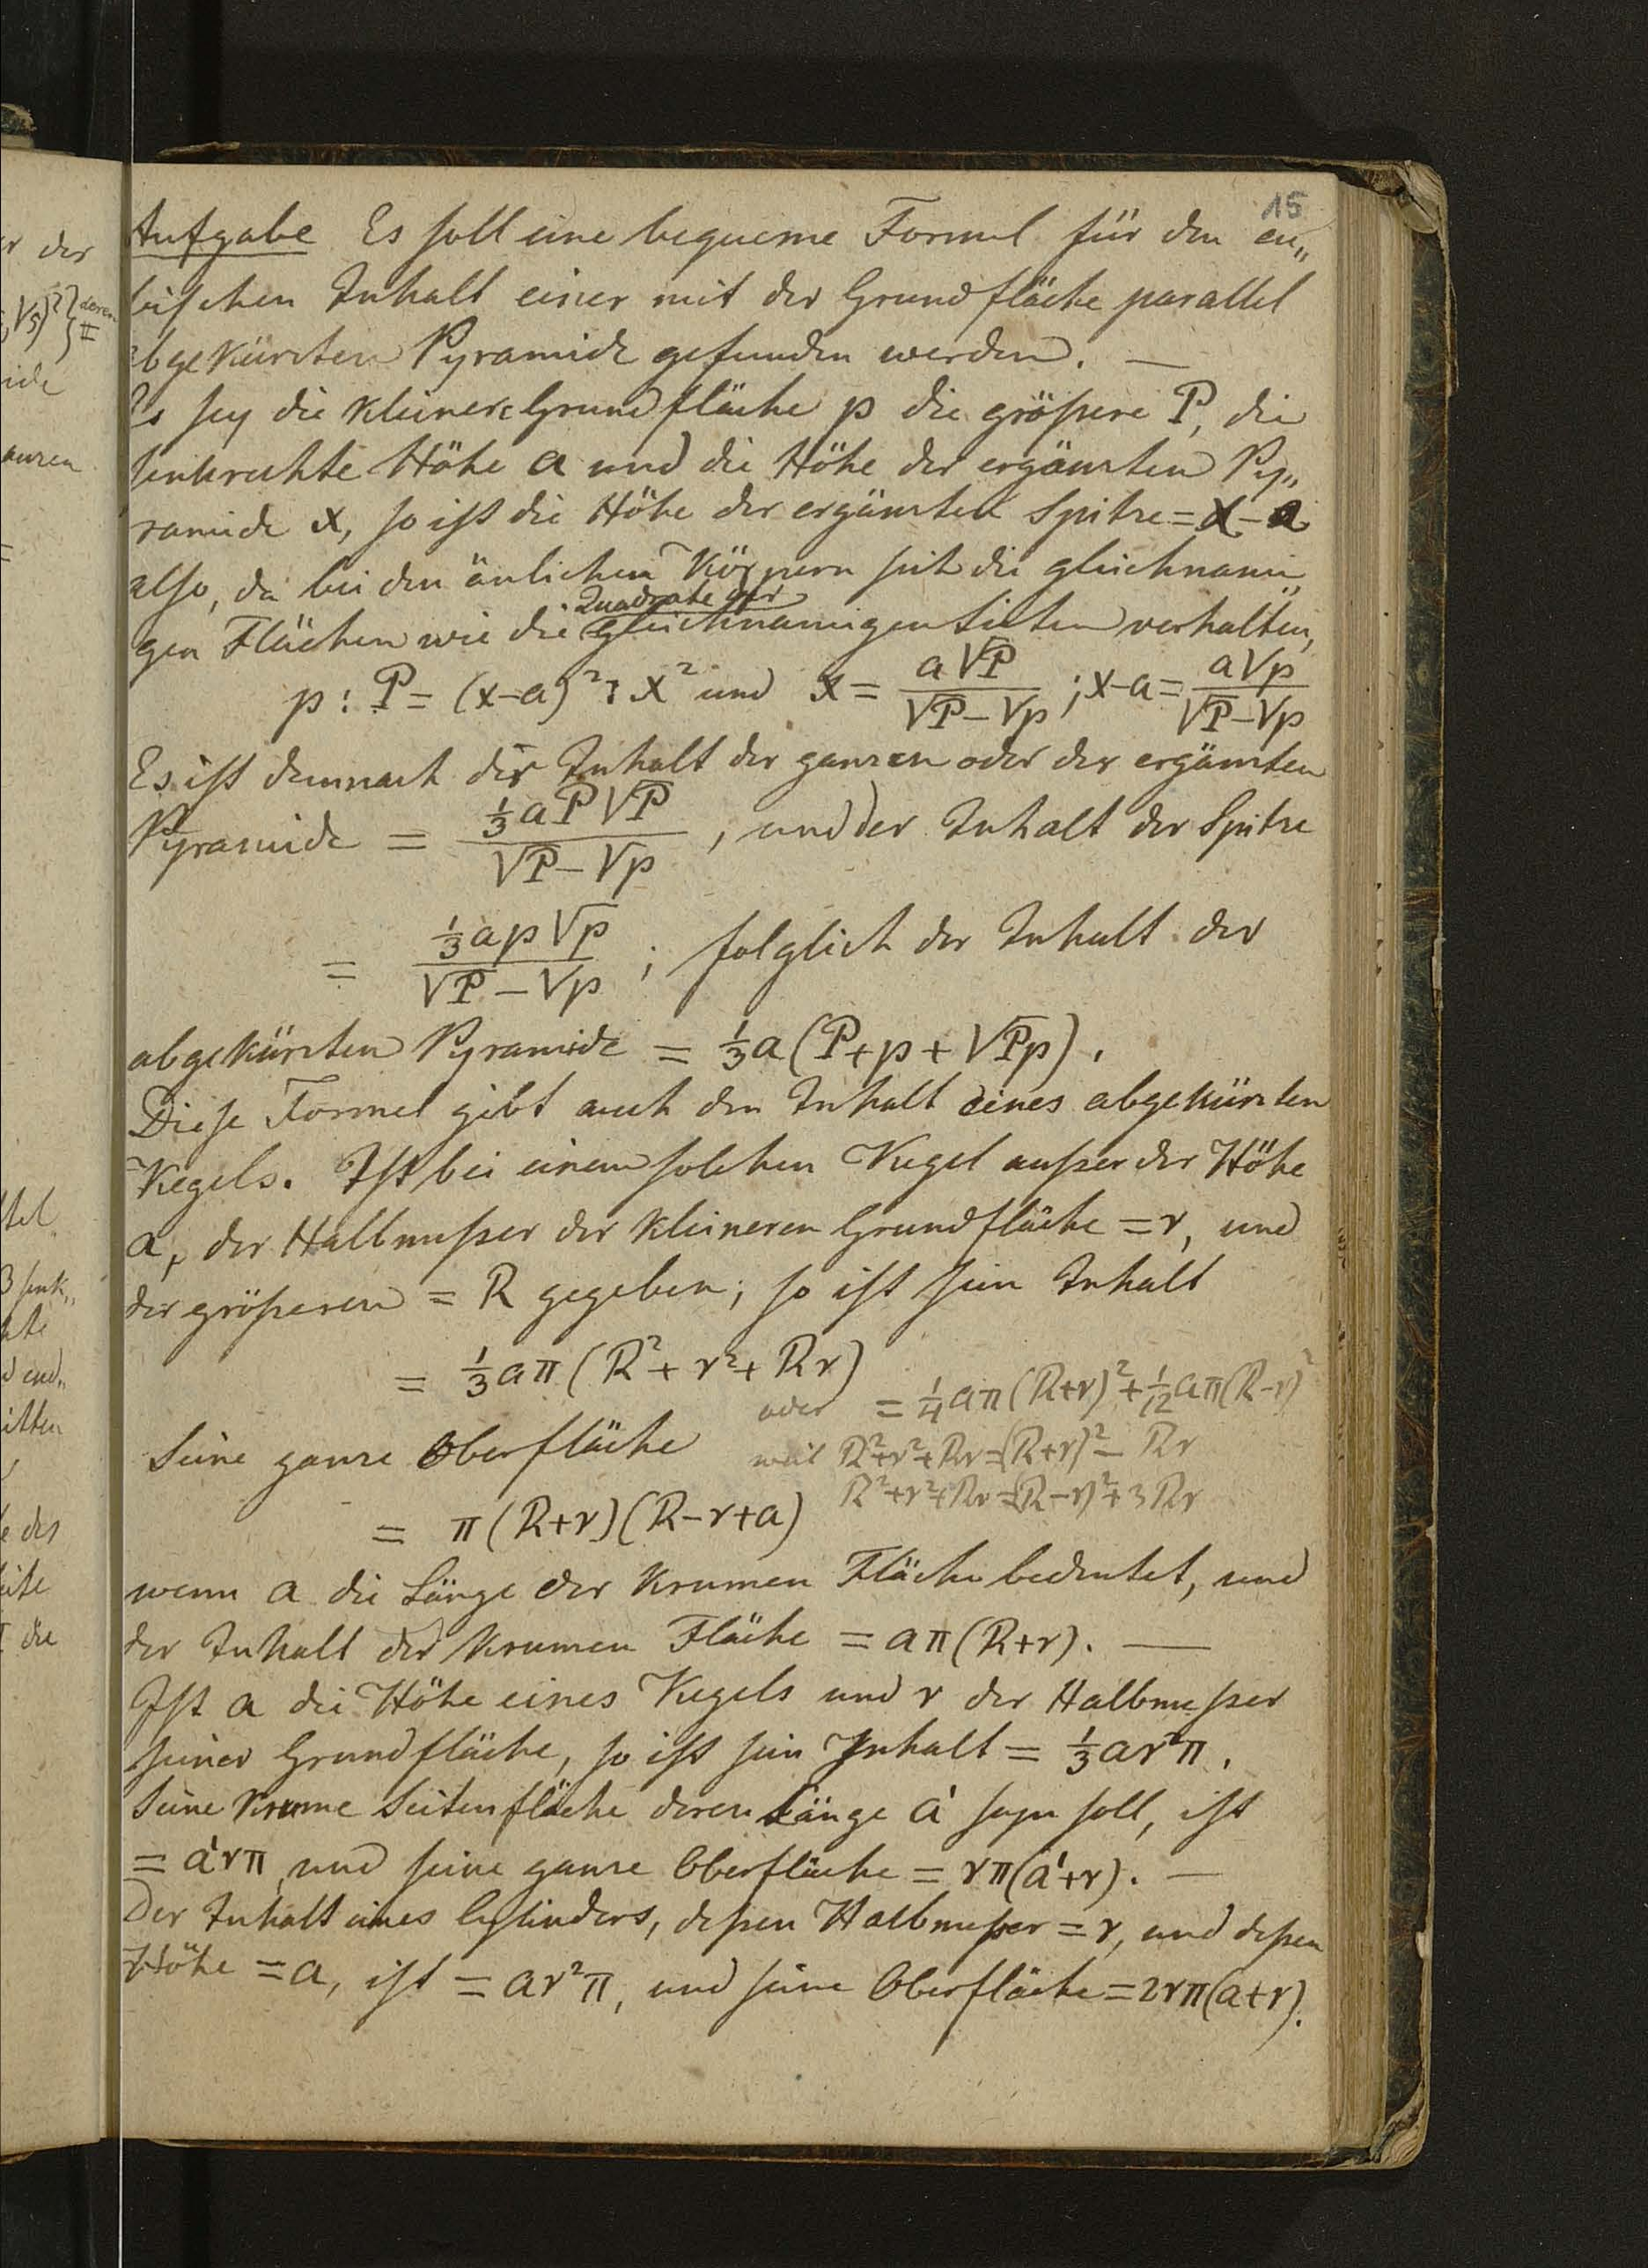 15
Aufgabe Es soll eine bequeme Formel für den cu„
bischen Inhalt einer mit der Grundfläche parallel
abgekürzten Pyramide gefunden werden. —
Es sey die kleinere Grundfläche p die größere P, die
senkrechte Höhe a und die Höhe der ergänzten Py„
ramide x, so ist die Höhe der ergänzten Spitze = x - a
also, da bei den änlichen Körpern sich die gleichnami„
Quadrate der
gen Flächen wie die gleichnamigen Seiten verhalten,
p : P = (x-a)² : x² und x = a√P / (√P - √p) ; x-a = a√p / (√P - √p)
Es ist demnach der Inhalt der ganzen oder der ergänzten
Pyramide = ⅓aP√P / (√P - √p) , und der Inhalt der Spitze
= ⅓ap√p / (√P - √p) ; folglich der Inhalt der
abgekürzten Pyramide = ⅓a(P + p + √Pp).
Diese Formel gibt auch den Inhalt eines abgekürzten
Kegels. Ist bei einem solchen Kegel außer der Höhe
a, der Halbmeßer der kleineren Grundfläche = r, und
der größeren = R gegeben; so ist sein Inhalt
= ⅓aπ(R² + r² + Rr)
oder = ¼aπ(R+r)² + 1/12 aπ(R-r)²
Seine ganze Oberfläche
weil R²+r²+Rr = (R+r)² - Rr
R²+r²+Rr = (R-r)² + 3Rr
= π(R+r)(R-r+a)
wenn a die Länge der krumen Fläche bedeutet, und
der Inhalt der krumen Fläche = aπ(R+r). —
Ist a die Höhe eines Kegels und r der Halbmeßer
seiner Grundfläche, so ist sein Inhalt = ⅓ar²π.
Seine krume Seitenfläche deren Länge a' seyn soll, ist
= a'rπ, und seine ganze Oberfläche = rπ(a'+r). —
Der Inhalt eines Cylinders, deßen Halbmeßer = r, und deßen
Höhe = a, ist = ar²π, und seine Oberfläche = 2rπ(a+r).